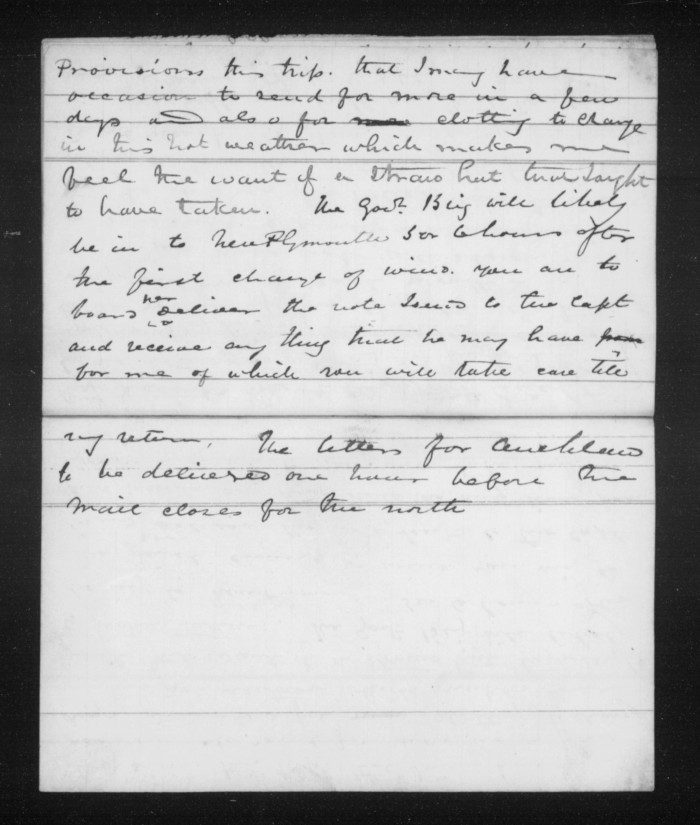 Provisions this trip. that I may have
occasion to send for more in a few
days and also for clothing to change
in this hot weather which makes me
feel the want of a Straw hat that I ought
to have taken. The Govt. Brig will likely
be in to New Plymouth 5 or 6 hours after
the first change of wind. you are to
board her deliver the note I send to the Capt
and receive any thing that he may have
for me of which you will take care till
my return. The letters for Auckland
to be delivered one hour before the
Mail closes for the north